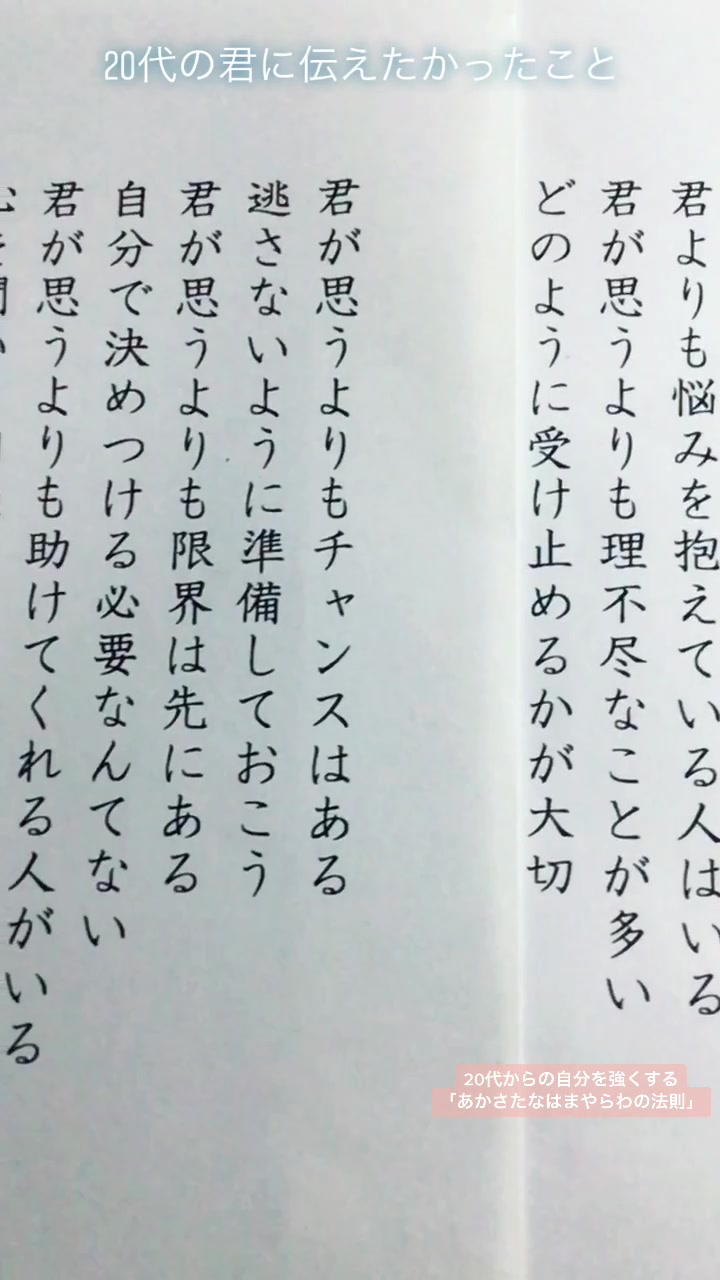 20代の君に伝えたかったこと
君よりも悩みを抱えている人はいる
君が思うよりも理不尽なことが多い
どのように受け止めるかが大切
君が思うよりもチャンスはある
逃さないように準備しておこう
君が思うよりも限界は先にある
自分で決めつける必要なんてない
君が思うよりも助けてくれる人がいる
20代からの自分を強くする
「あかさたなはまやらわの法則」